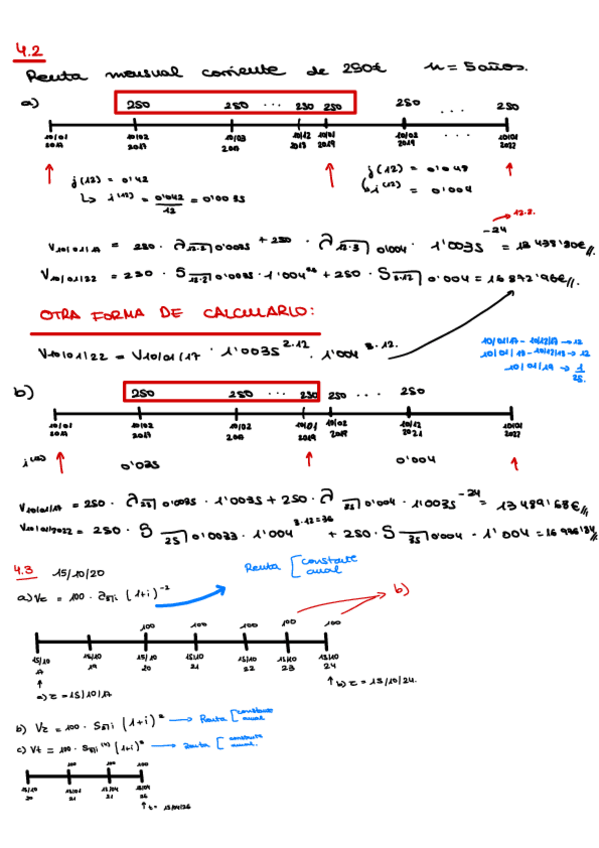 4.2
Renta mensual corriente de 250€ n = 5 años.
a) 250 250 ... 250 250 250 ... 250
10/01 2017 10/02 2017 10/03 10/12 2018 10/01 2019 10/02 2019 ... 10/01 2022
j(12) = 0'42
↳ i(12) = 0'042/12 = 0'0035
j(12) = 0'048
i(12) = 0'004
12.2.
V10/01/17 = 250 · a 12·2 0'0035 + 250 · a 12·3 0'004 · 1'0035 -24 = 13 438'30€//.
V10/01/22 = 250 · S 12·2 0'0035 · 1'004 + 250 · S 3·12 0'004 = 16 872'96€//.
OTRA FORMA DE CALCULARLO:
V10/01/22 = V10/01/17 · 1'0035 2·12 · 1'004 3·12.
10/01/17 - 10/12/17 → 12
10/01/18 - 10/12/18 → 12
10/01/19 → 1
25.
b) 250 250 ... 250 250 ... 250
10/01 2017 10/02 2017 10/02 10/01 2019 10/02 2019 10/12 2021 10/01 2022
i(12) 0'035 0'004
V10/01/17 = 250 · a 25 0'0035 · 1'0035 + 250 · a 35 0'004 · 1'0035 -24 = 13 489'68€//.
V10/01/2022 = 250 · S 25 0'0035 · 1'004 3·12=36 + 250 · S 35 0'004 · 1'004 =
4.3 15/10/20
Renta [constante anual
a) Vt = 100 · a 5 i (1+i) -2
b)
100 100 100 100 100
15/10 17 15/10 19 15/10 20 15/10 21 15/10 22 15/10 23 15/10 24
a) t = 15/10/17
b) t = 15/10/24.
b) Vt = 100 · S 5 i (1+i) → Renta [constante anual
c) Vt = 100 · S 5 i (1+i) → Renta [constante anual.
100 100 100